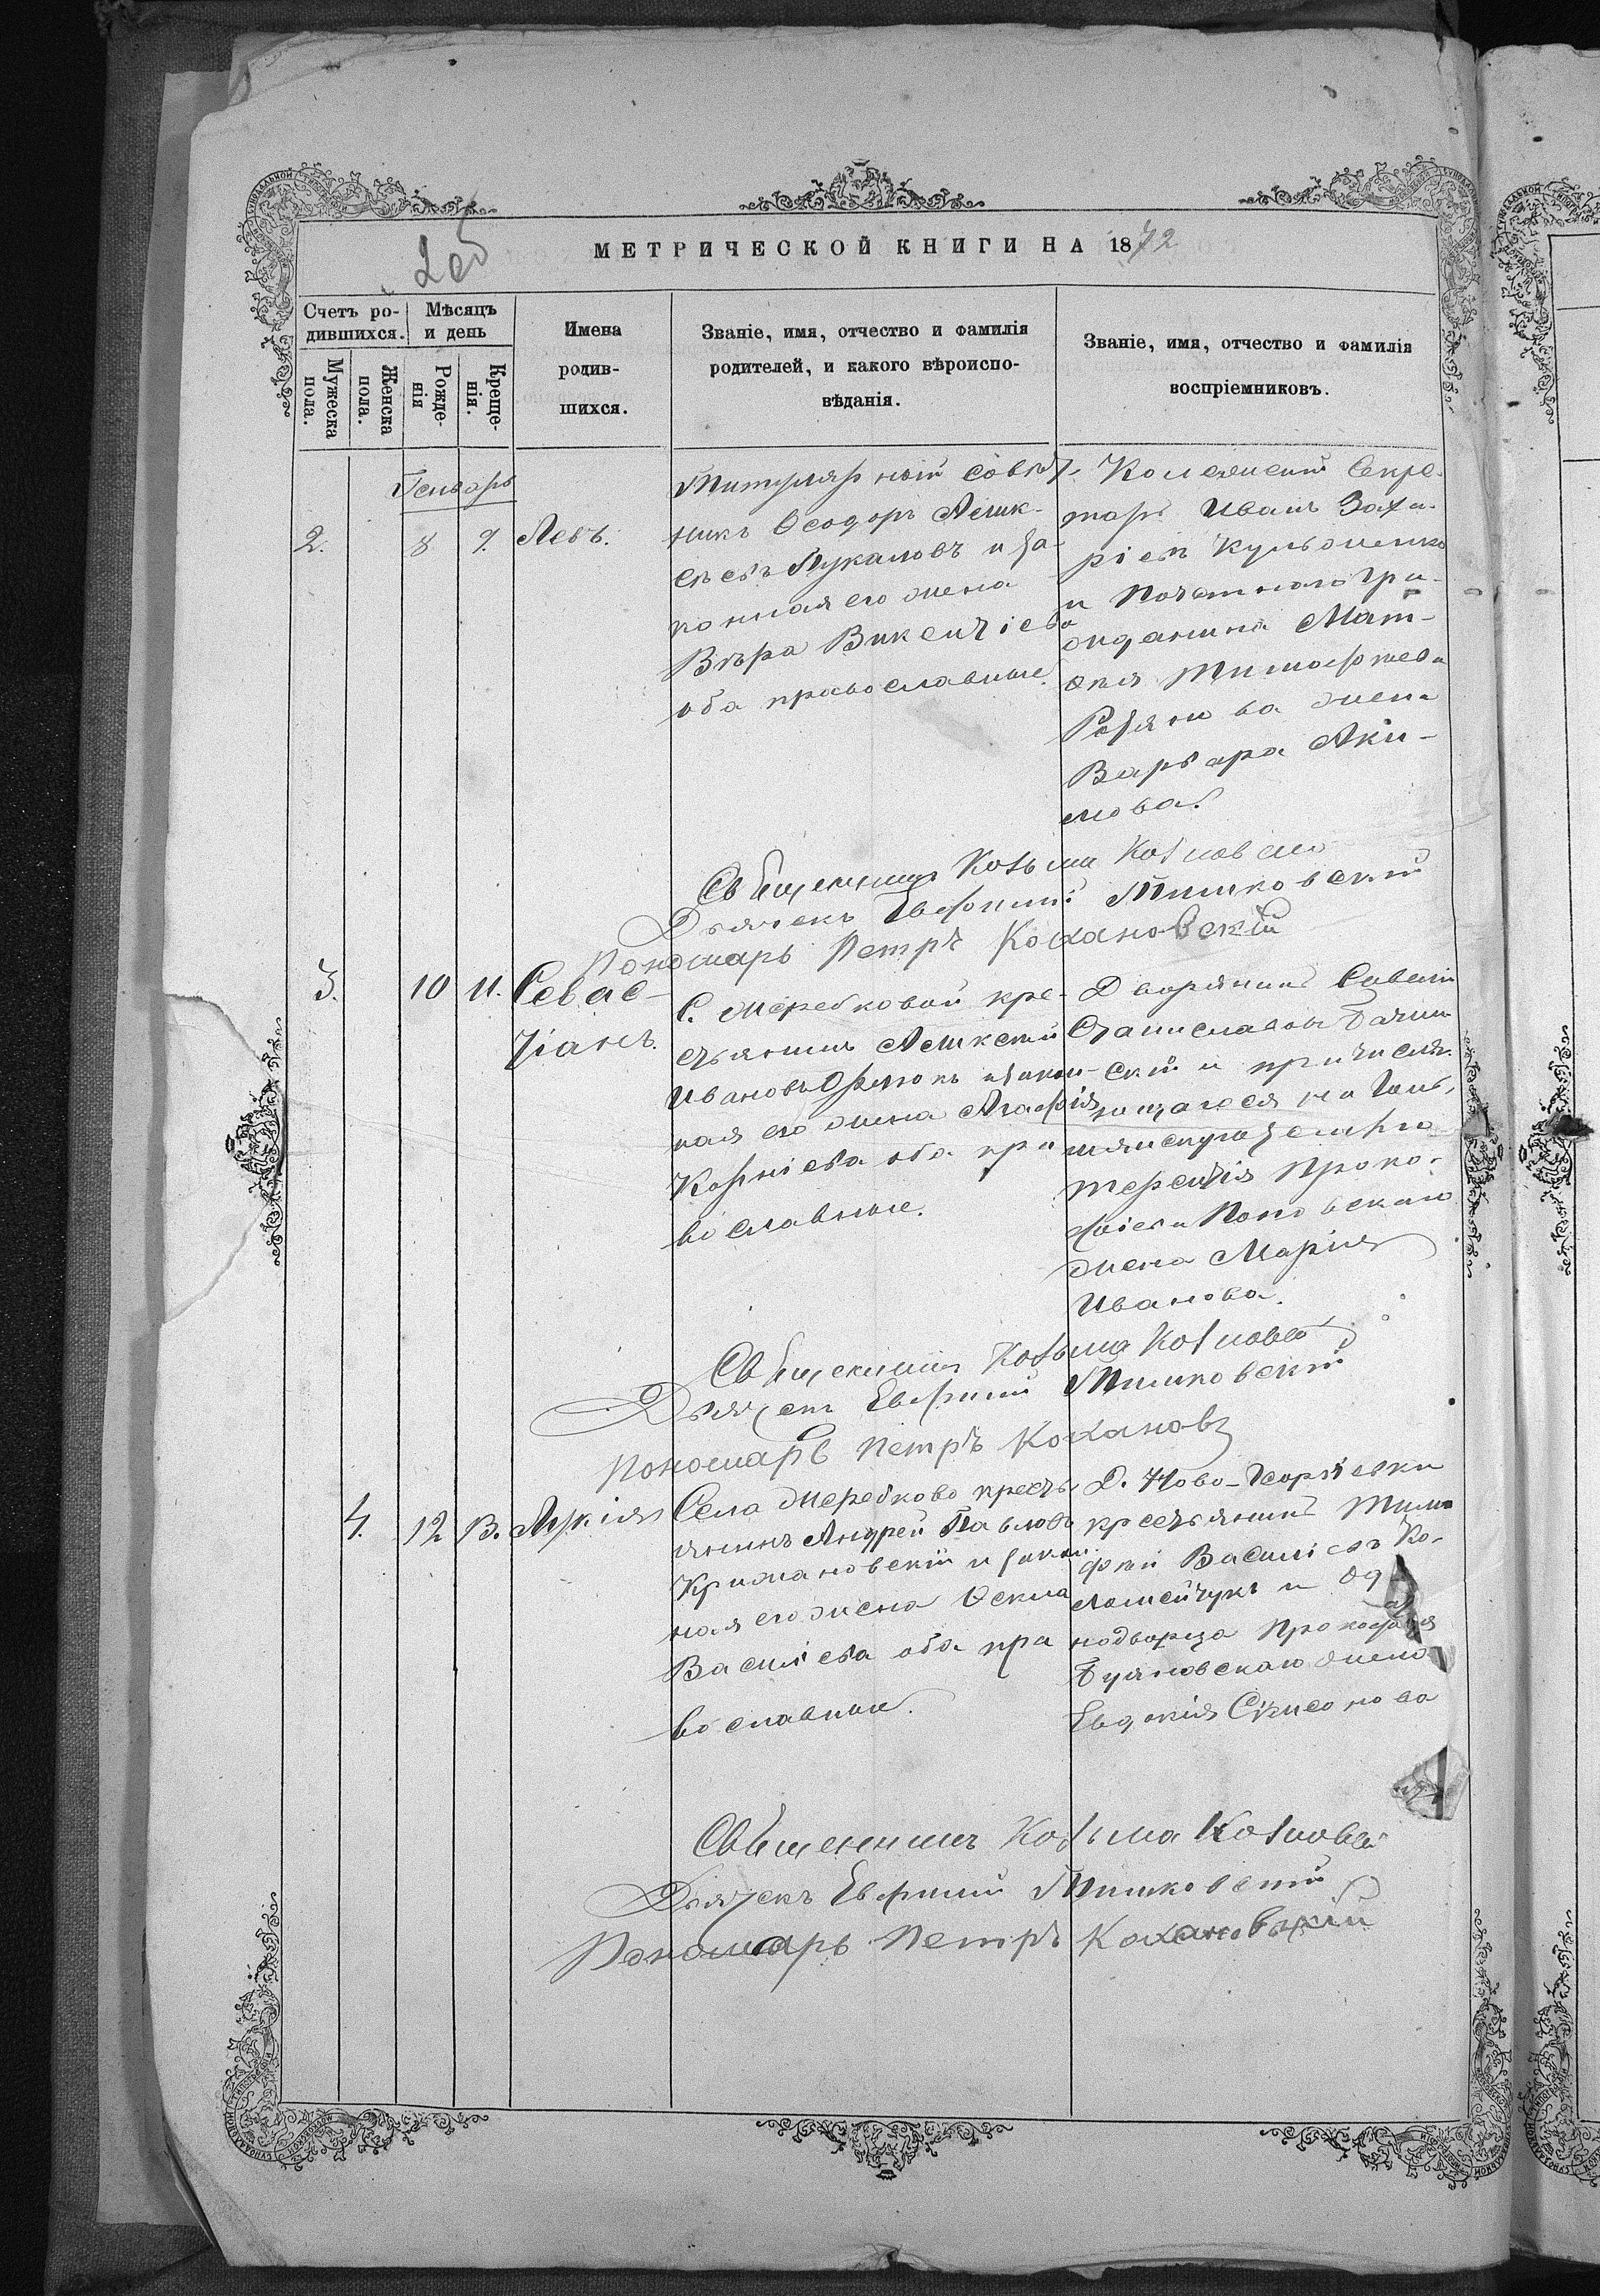 МЕТРИЧЕСКОЙ КНИГИ НА 1872
Счетъ ро-
дившихся.
Мѣсяцъ
и день
Мужеска
пола.
Женска
пола.
Рожде-
нія
Креще-
нія.
Имена
родив-
шихся.
Званіе, имя, отчество и фамилія
родителей, и какого вѣроиспо-
вѣданія.
Званіе, имя, отчество и фамилія
воспріемниковъ.
Генварь
2.
8
9.
Левъ.
Титулярный совѣт-
никъ Ѳеодоръ Алек-
сѣевъ Лукановъ и за-
конная его жена
Вѣра Викентіева
оба православные.
Колежскій Секре-
тарь Иванъ Заха-
ріевъ
и Почетнаго гра-
жданина Мат-
Тимофѣева
жена
Варвара Аки-
мова.
Священникъ Козьма
Дьячекъ Евфимій Тишковскій
Пономарь Петръ Кохановскій
3.
10
11.
Севас-
тіанъ.
С. Жеребковой кре-
стьянинъ Алексѣй
Ивановъ и закон-
ная его жена Агафія
Корніева оба пра
вославные.
Дворянинъ Савелій
Станиславовъ
скій и причисля-
ющагося на
Терентія Проко-
фіева
жена Марія
Иванова.
Священникъ Козьма
Дьячекъ Евфимій Тишковскій
Пономарь Петръ Кохановъ
4.
12
13.
Лукія
Села Жеребково кресть
янинъ Андрей Павловъ
Крижановскій и закон
ная его жена Ѳекла
Василіева оба пра
вославные.
Д. Ново-Георгіевки
крестьянинъ Тимо
фѣй Василіевъ Ко-
ломейчукъ и Од
нодворца Прокофія
жена
Евдокія
Священникъ Козьма
Дьячекъ Евфимій Тишковскій
Пономарь Петръ Кохановскій